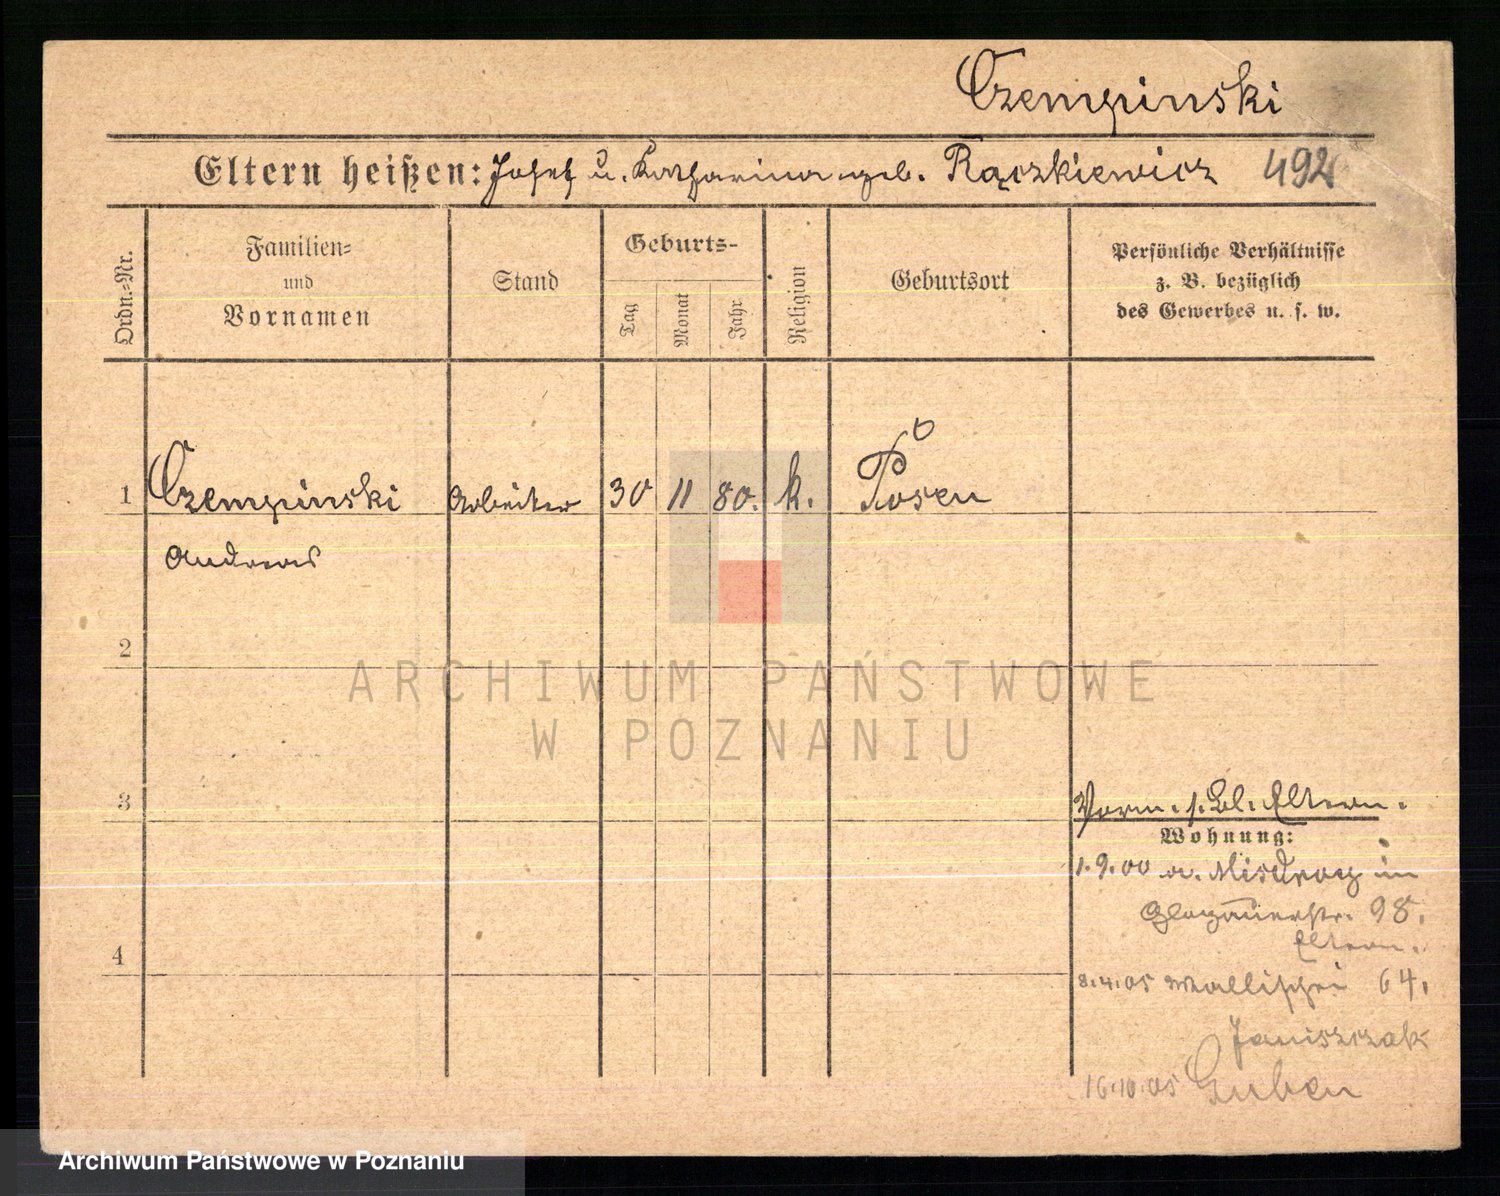 Czempinski
Eltern heißen: Josef u. Katharina geb. Rączkiewicz 492
Ordn.-Nr.
Familien-
und
Vornamen
Stand
Geburts-
Tag
Monat
Jahr
Religion
Geburtsort
Persönliche Verhältnisse
z. B. bezüglich
des Gewerbes u. s. w.
1 Czempinski Arbeiter 30 11 80. k. Posen
Andreas
2
ARCHIWUM PAŃSTWOWE
W POZNANIU
3
Vorm. s. Bl. Eltern.
Wohnung:
1.9.00 a. Misdroy in
Glogauerstr. 98.
Eltern.
4
8.4.05 Wallischei 64.
Janiszczak
16.10.05 Guben
Archiwum Państwowe w Poznaniu